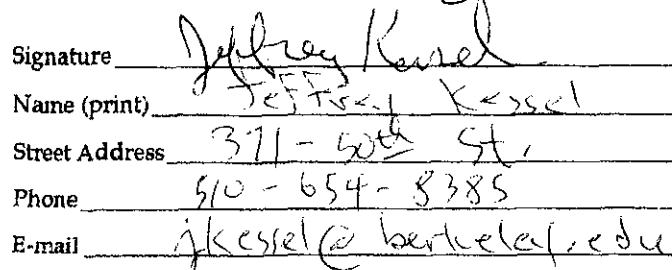 Signature Jeffrey Kessel
Name (print) Jeffrey Kessel
Street Address 371-50th St.
Phone 510-654-8385
E-mail jkessel@berkeley.edu